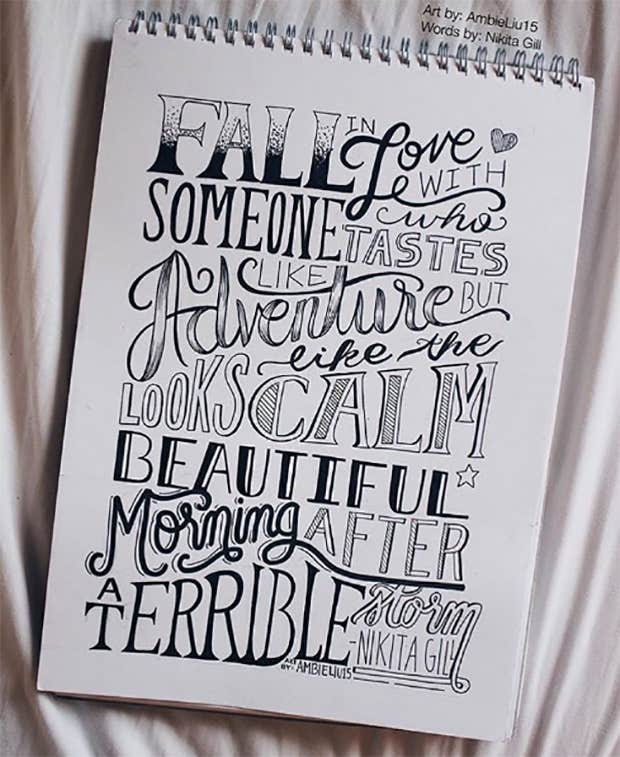 Art by: AmbieLiu15
Words by: Nikita Gill
FALL IN Love WITH
SOMEONE who TASTES
LIKE Adventure BUT
LOOKS like the CALM
BEAUTIFUL
Morning AFTER
A TERRIBLE storm
-NIKITA GILL
ART BY: AMBIELIU15